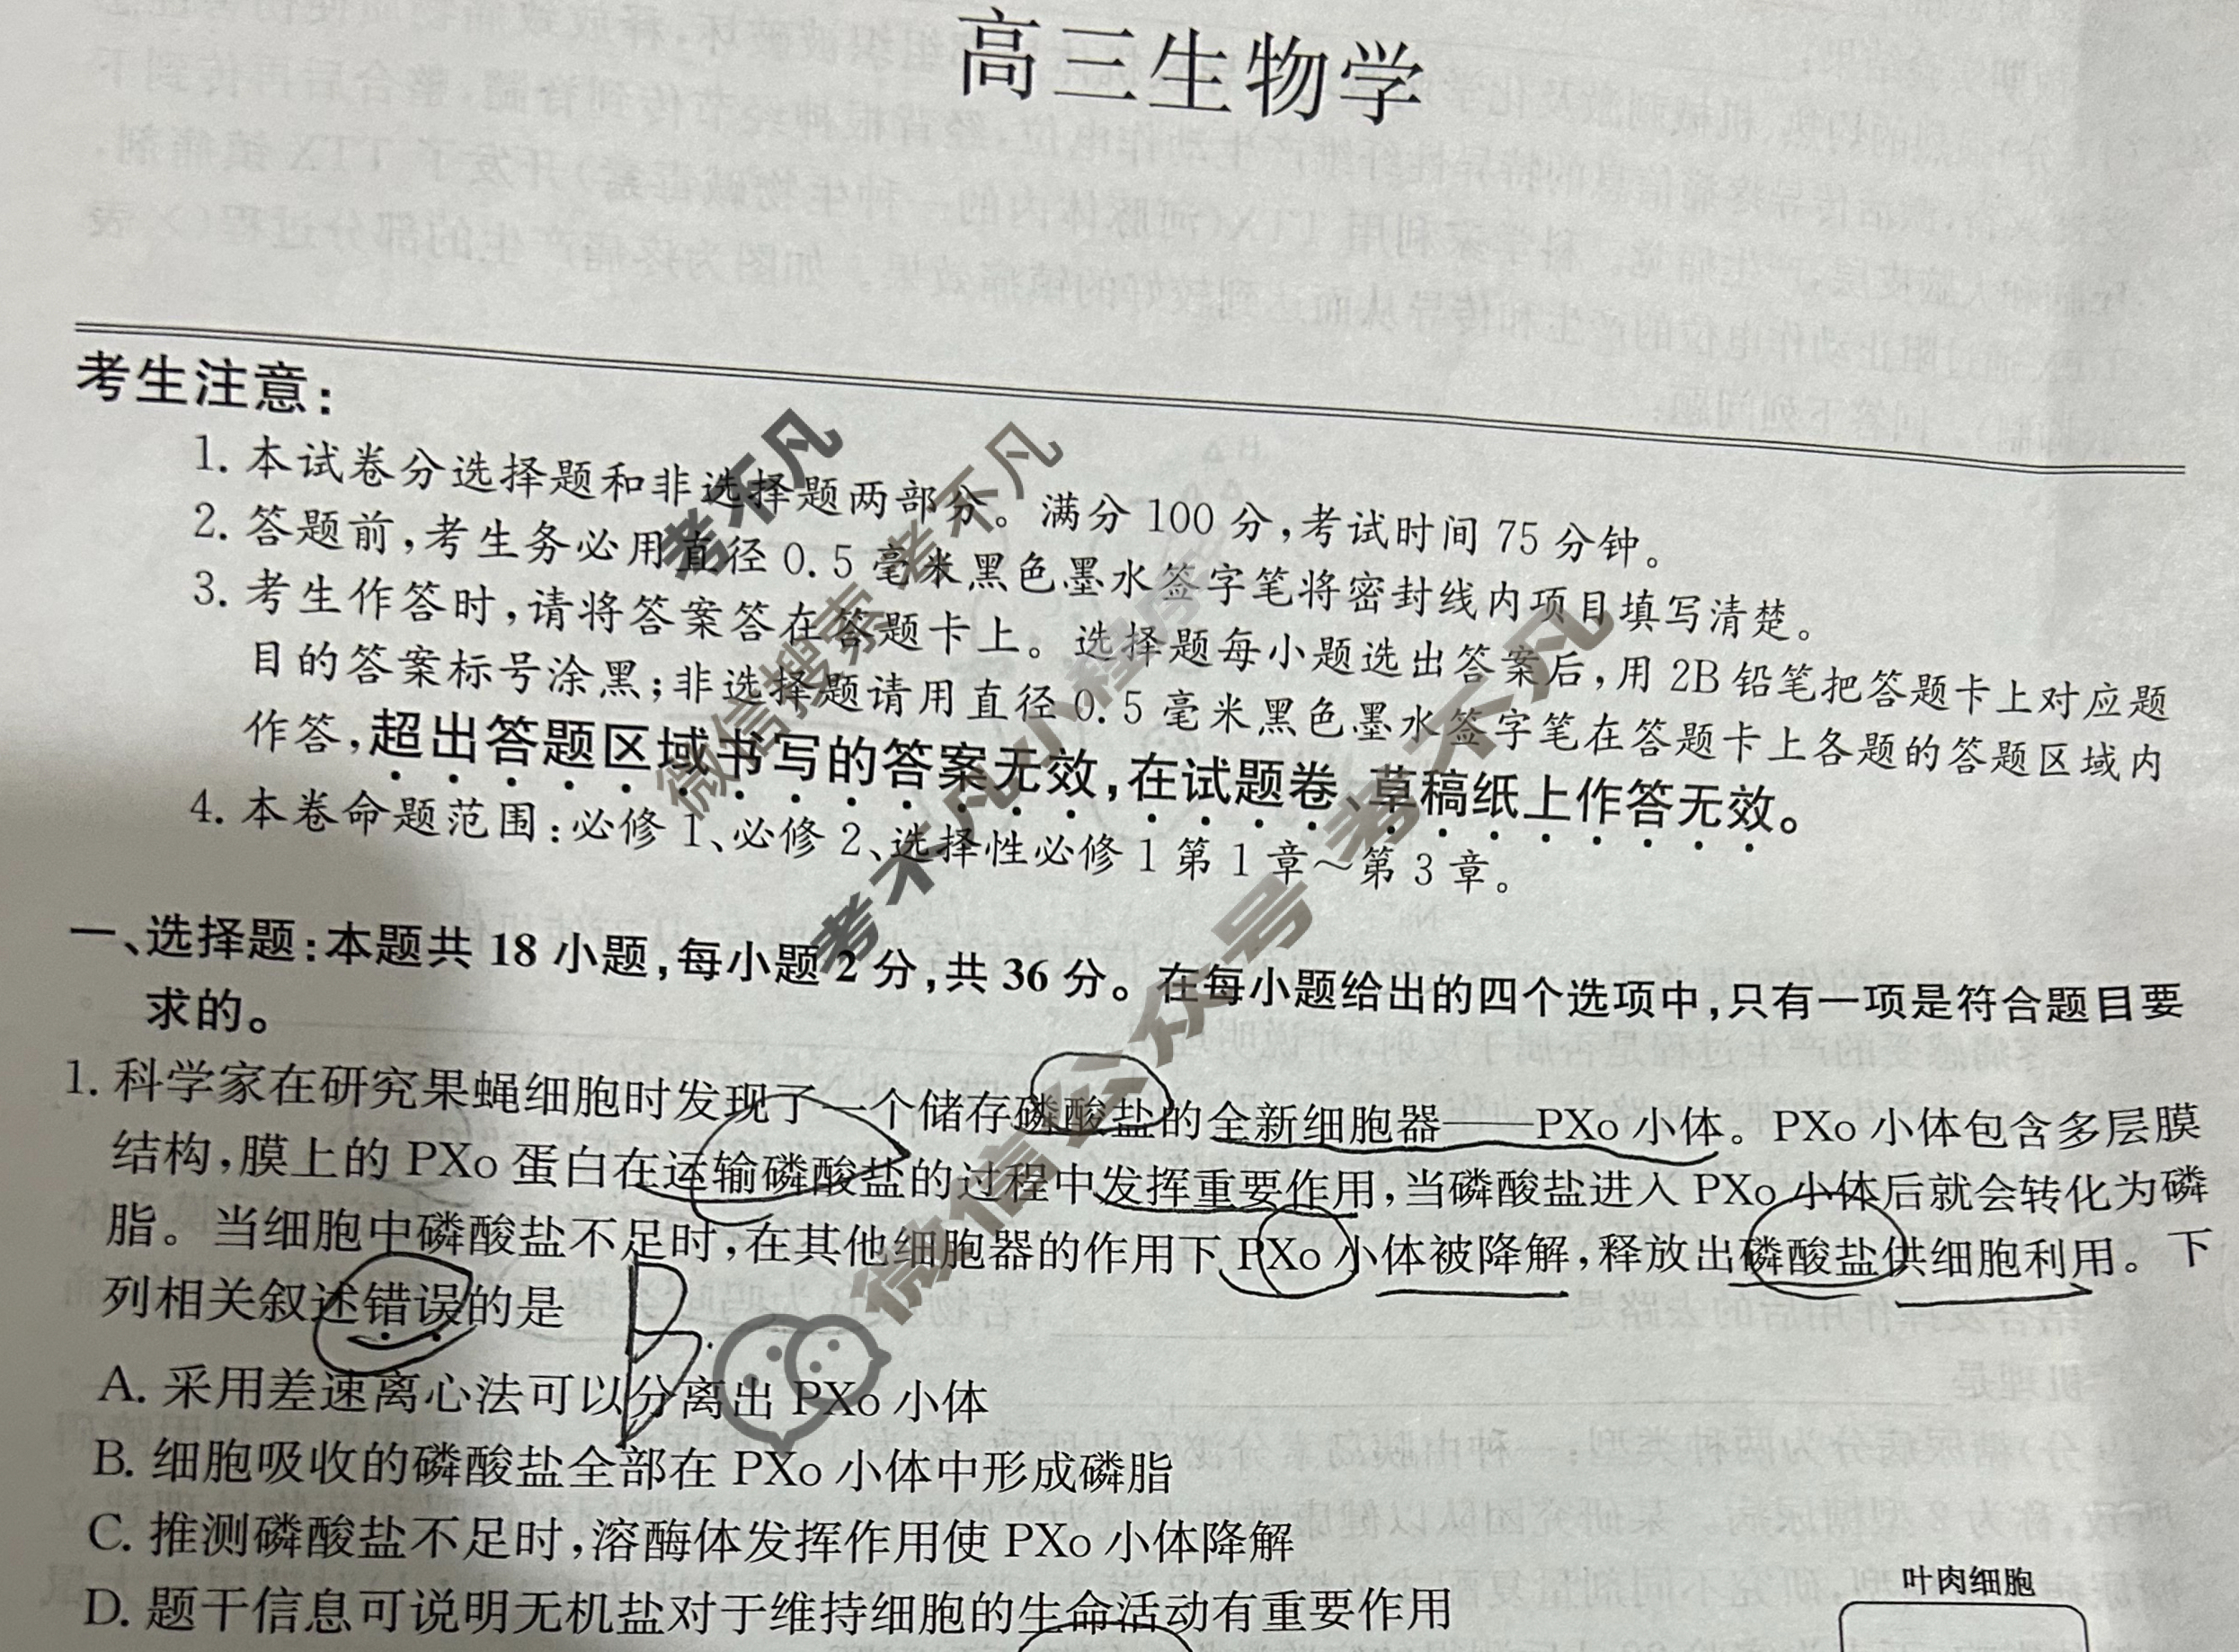 高三生物学
考生注意:
1. 本试卷分选择题和非选择题两部分。满分 100 分,考试时间 75 分钟。
2. 答题前,考生务必用直径 0.5 毫米黑色墨水签字笔将密封线内项目填写清楚。
3. 考生作答时,请将答案答在答题卡上。选择题每小题选出答案后,用 2B 铅笔把答题卡上对应题
目的答案标号涂黑;非选择题请用直径 0.5 毫米黑色墨水签字笔在答题卡上各题的答题区域内
作答,超出答题区域书写的答案无效,在试题卷、草稿纸上作答无效。
4. 本卷命题范围:必修 1、必修 2、选择性必修 1 第 1 章~第 3 章。
一、选择题:本题共 18 小题,每小题 2 分,共 36 分。在每小题给出的四个选项中,只有一项是符合题目要
求的。
1. 科学家在研究果蝇细胞时发现了一个储存磷酸盐的全新细胞器——PXo 小体。PXo 小体包含多层膜
结构,膜上的 PXo 蛋白在运输磷酸盐的过程中发挥重要作用,当磷酸盐进入 PXo 小体后就会转化为磷
脂。当细胞中磷酸盐不足时,在其他细胞器的作用下 PXo 小体被降解,释放出磷酸盐供细胞利用。下
列相关叙述错误的是
B
A. 采用差速离心法可以分离出 PXo 小体
B. 细胞吸收的磷酸盐全部在 PXo 小体中形成磷脂
C. 推测磷酸盐不足时,溶酶体发挥作用使 PXo 小体降解
D. 题干信息可说明无机盐对于维持细胞的生命活动有重要作用
叶肉细胞
考不凡
微信搜索 考不凡
考不凡小程序
微信公众号 考不凡